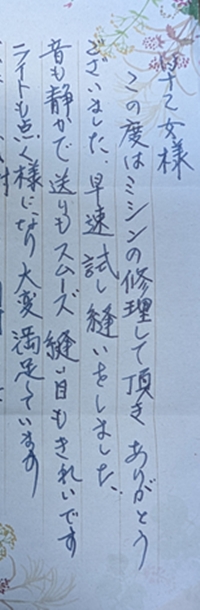 女様
この度はミシンの修理して頂き ありがとう
ございました。早速試し縫いをしました、
音も静かで 送りもスムーズ 縫い目もきれいです
ライトも点く様になり 大変 満足ています